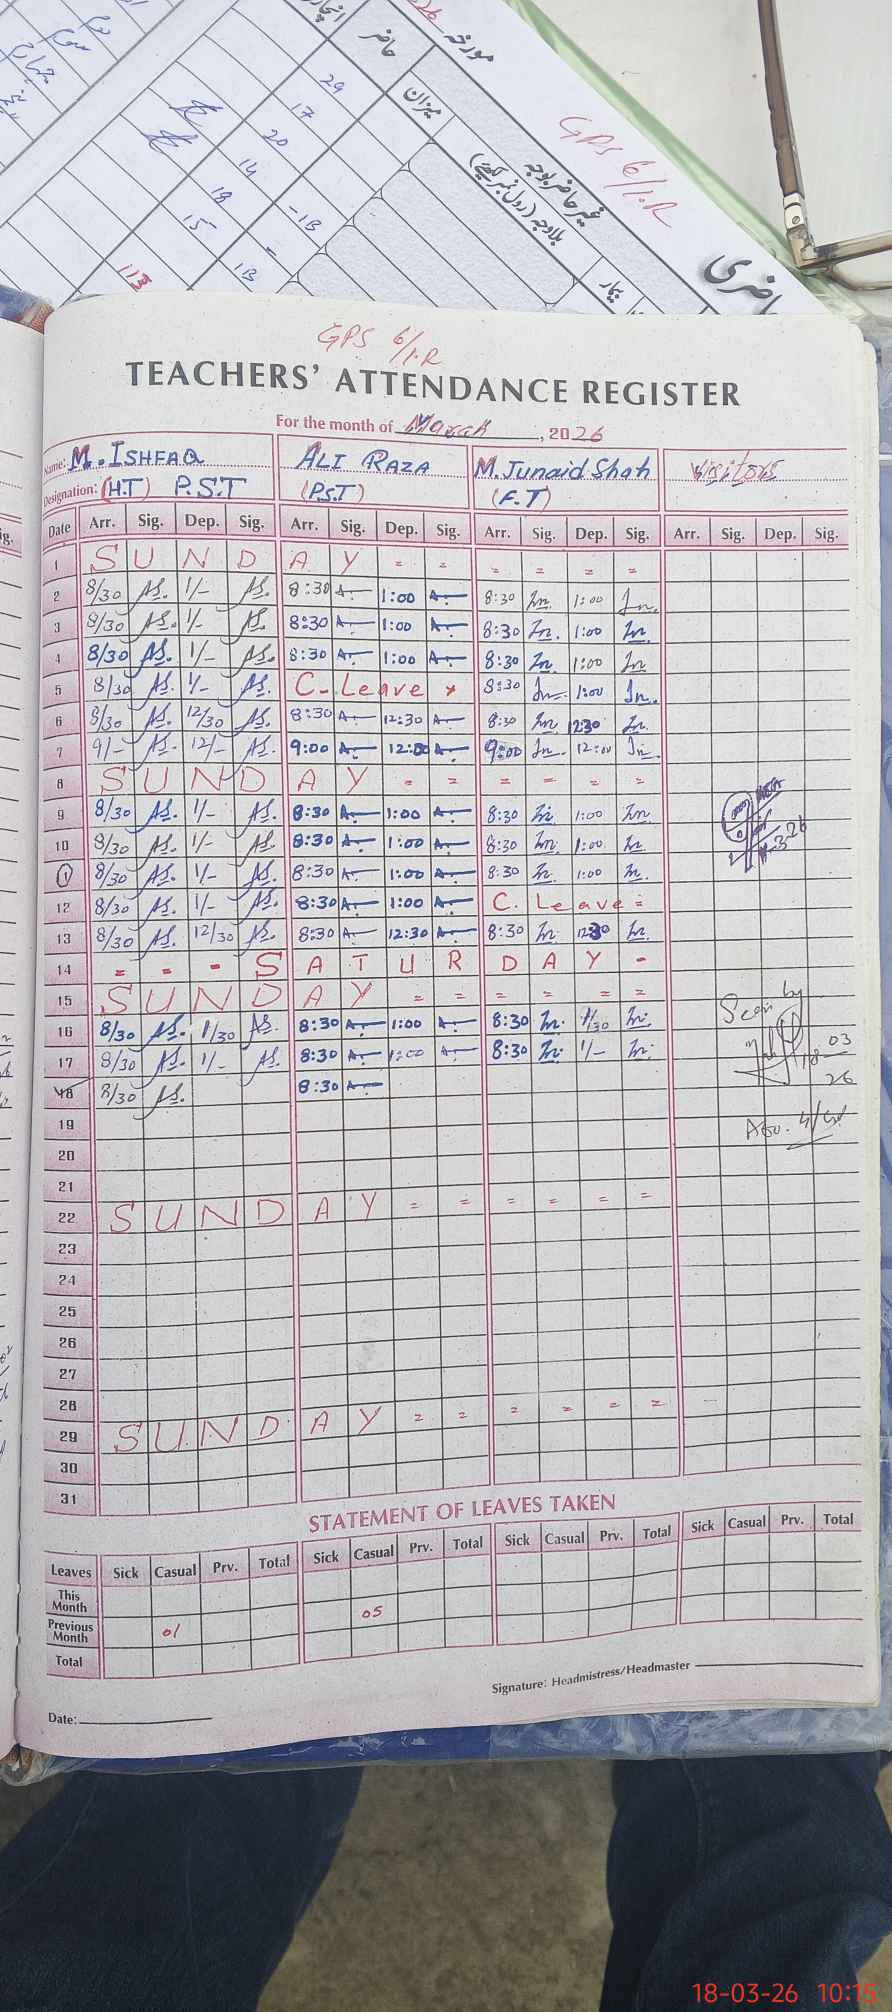 مورخہ
حاضر
میزان
غیر حاضر بوجہ
بلاوجہ (رول نمبر لکھیے)
بیمار
29
17
20
14
18 -1B
15 -
113 1B
GPS 6/1.R
GPS 6/1.R
TEACHERS' ATTENDANCE REGISTER
For the month of March, 2026
Name: M. ISHFAQ ALI RAZA M. Junaid Shah Visitors
Designation: (H.T) P.S.T (P.S.T) (F.T)
Date Arr. Sig. Dep. Sig. Arr. Sig. Dep. Sig. Arr. Sig. Dep. Sig. Arr. Sig. Dep. Sig.
1 S U N D A Y = = = = = =
2 8/30 AS. 1/- AS. 8:30 A. 1:00 A. 8:30 1:00
3 8/30 AS. 1/- AS. 8:30 A. 1:00 A. 8:30 1:00
4 8/30 AS. 1/- AS. 8:30 A. 1:00 A. 8:30 1:00
5 8/30 AS. 1/- AS. C-Leave 8:30 1:00
6 8/30 AS. 12/30 AS. 8:30 A. 12:30 A. 8:30 12:30
7 9/- AS. 12/- AS. 9:00 A. 12:00 A. 9:00 12:00
8 S U N D A Y = = = = = =
9 8/30 AS. 1/- AS. 8:30 A. 1:00 A. 8:30 1:00
10 8/30 AS. 1/- AS. 8:30 A. 1:00 A. 8:30 1:00
11 8/30 AS. 1/- AS. 8:30 A. 1:00 A. 8:30 1:00
12 8/30 AS. 1/- AS. 8:30 A. 1:00 A. C. Leave =
13 8/30 AS. 12/30 AS. 8:30 A. 12:30 A. 8:30 12:30
14 = - - S A T U R D A Y -
15 S U N D A Y = = = = = =
16 8/30 AS. 1/30 AS. 8:30 A. 1:00 A. 8:30 1/30
17 8/30 AS. 1/- AS. 8:30 A. 1:00 A. 8:30 1/-
18 8/30 AS. 8:30 A.
Seen by
18 03
26
19
20
21
22 S U N D A Y = = = = = =
23
24
25
26
27
28
29 S U N D A Y = = = = = =
30
31
STATEMENT OF LEAVES TAKEN
Leaves Sick Casual Prv. Total Sick Casual Prv. Total Sick Casual Prv. Total Sick Casual Prv. Total
This Month
Previous Month 01 05
Total
Signature: Headmistress/Headmaster
Date:
18-03-26 10:15